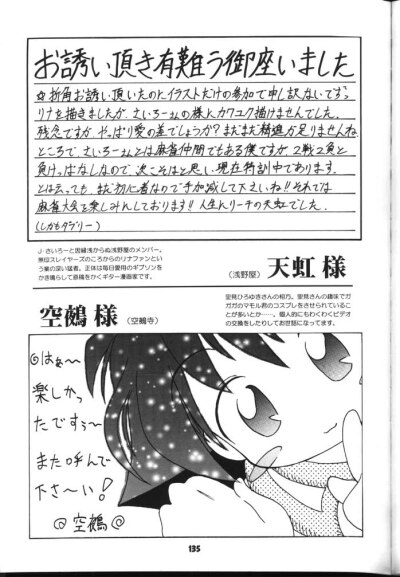 お誘い頂き有難う御座いました
☆折角お誘い頂いたのにイラストだけの参加で申し訳ないです。
リナを描きましたが、さいろーさんの様にカワユク描けませんでした。
残念ですが、やっぱり愛の差でしょうか?まだまだ精進が足りませんね
ところで、さいろーさんとは麻雀仲間でもある僕ですが、2戦2負と
負けっぱなしなので、次こそはと思い現在特訓中であります。
とは云っても、まだ初心者なので手加減して下さいね!!それでは
麻雀大会を楽しみにしております!!人生んリーチの天虹でした。
(しかもダブリー)
J・さいろーと因縁浅からぬ浅野屋のメンバー。
原型スレイヤーズのころからのリナファンとい
う業の深い猛者。正体は毎日愛用のギブソンを
かき鳴らして原稿をかくギター漫画家です。
(浅野屋)
天虹 様
空鵺 様
(空鵺寺)
里見ひろゆきさんの相方。里見さんの趣味でガ
ガガのマモル君のコスプレをさせられているこ
とが多いとか……。個人的にもわくわくビデオ
の交換をしたりしてお世話になってます。
◎はぁ〜
楽しかっ
たですぅ〜
また呼んで
下さ〜い!
@空鵺@
135